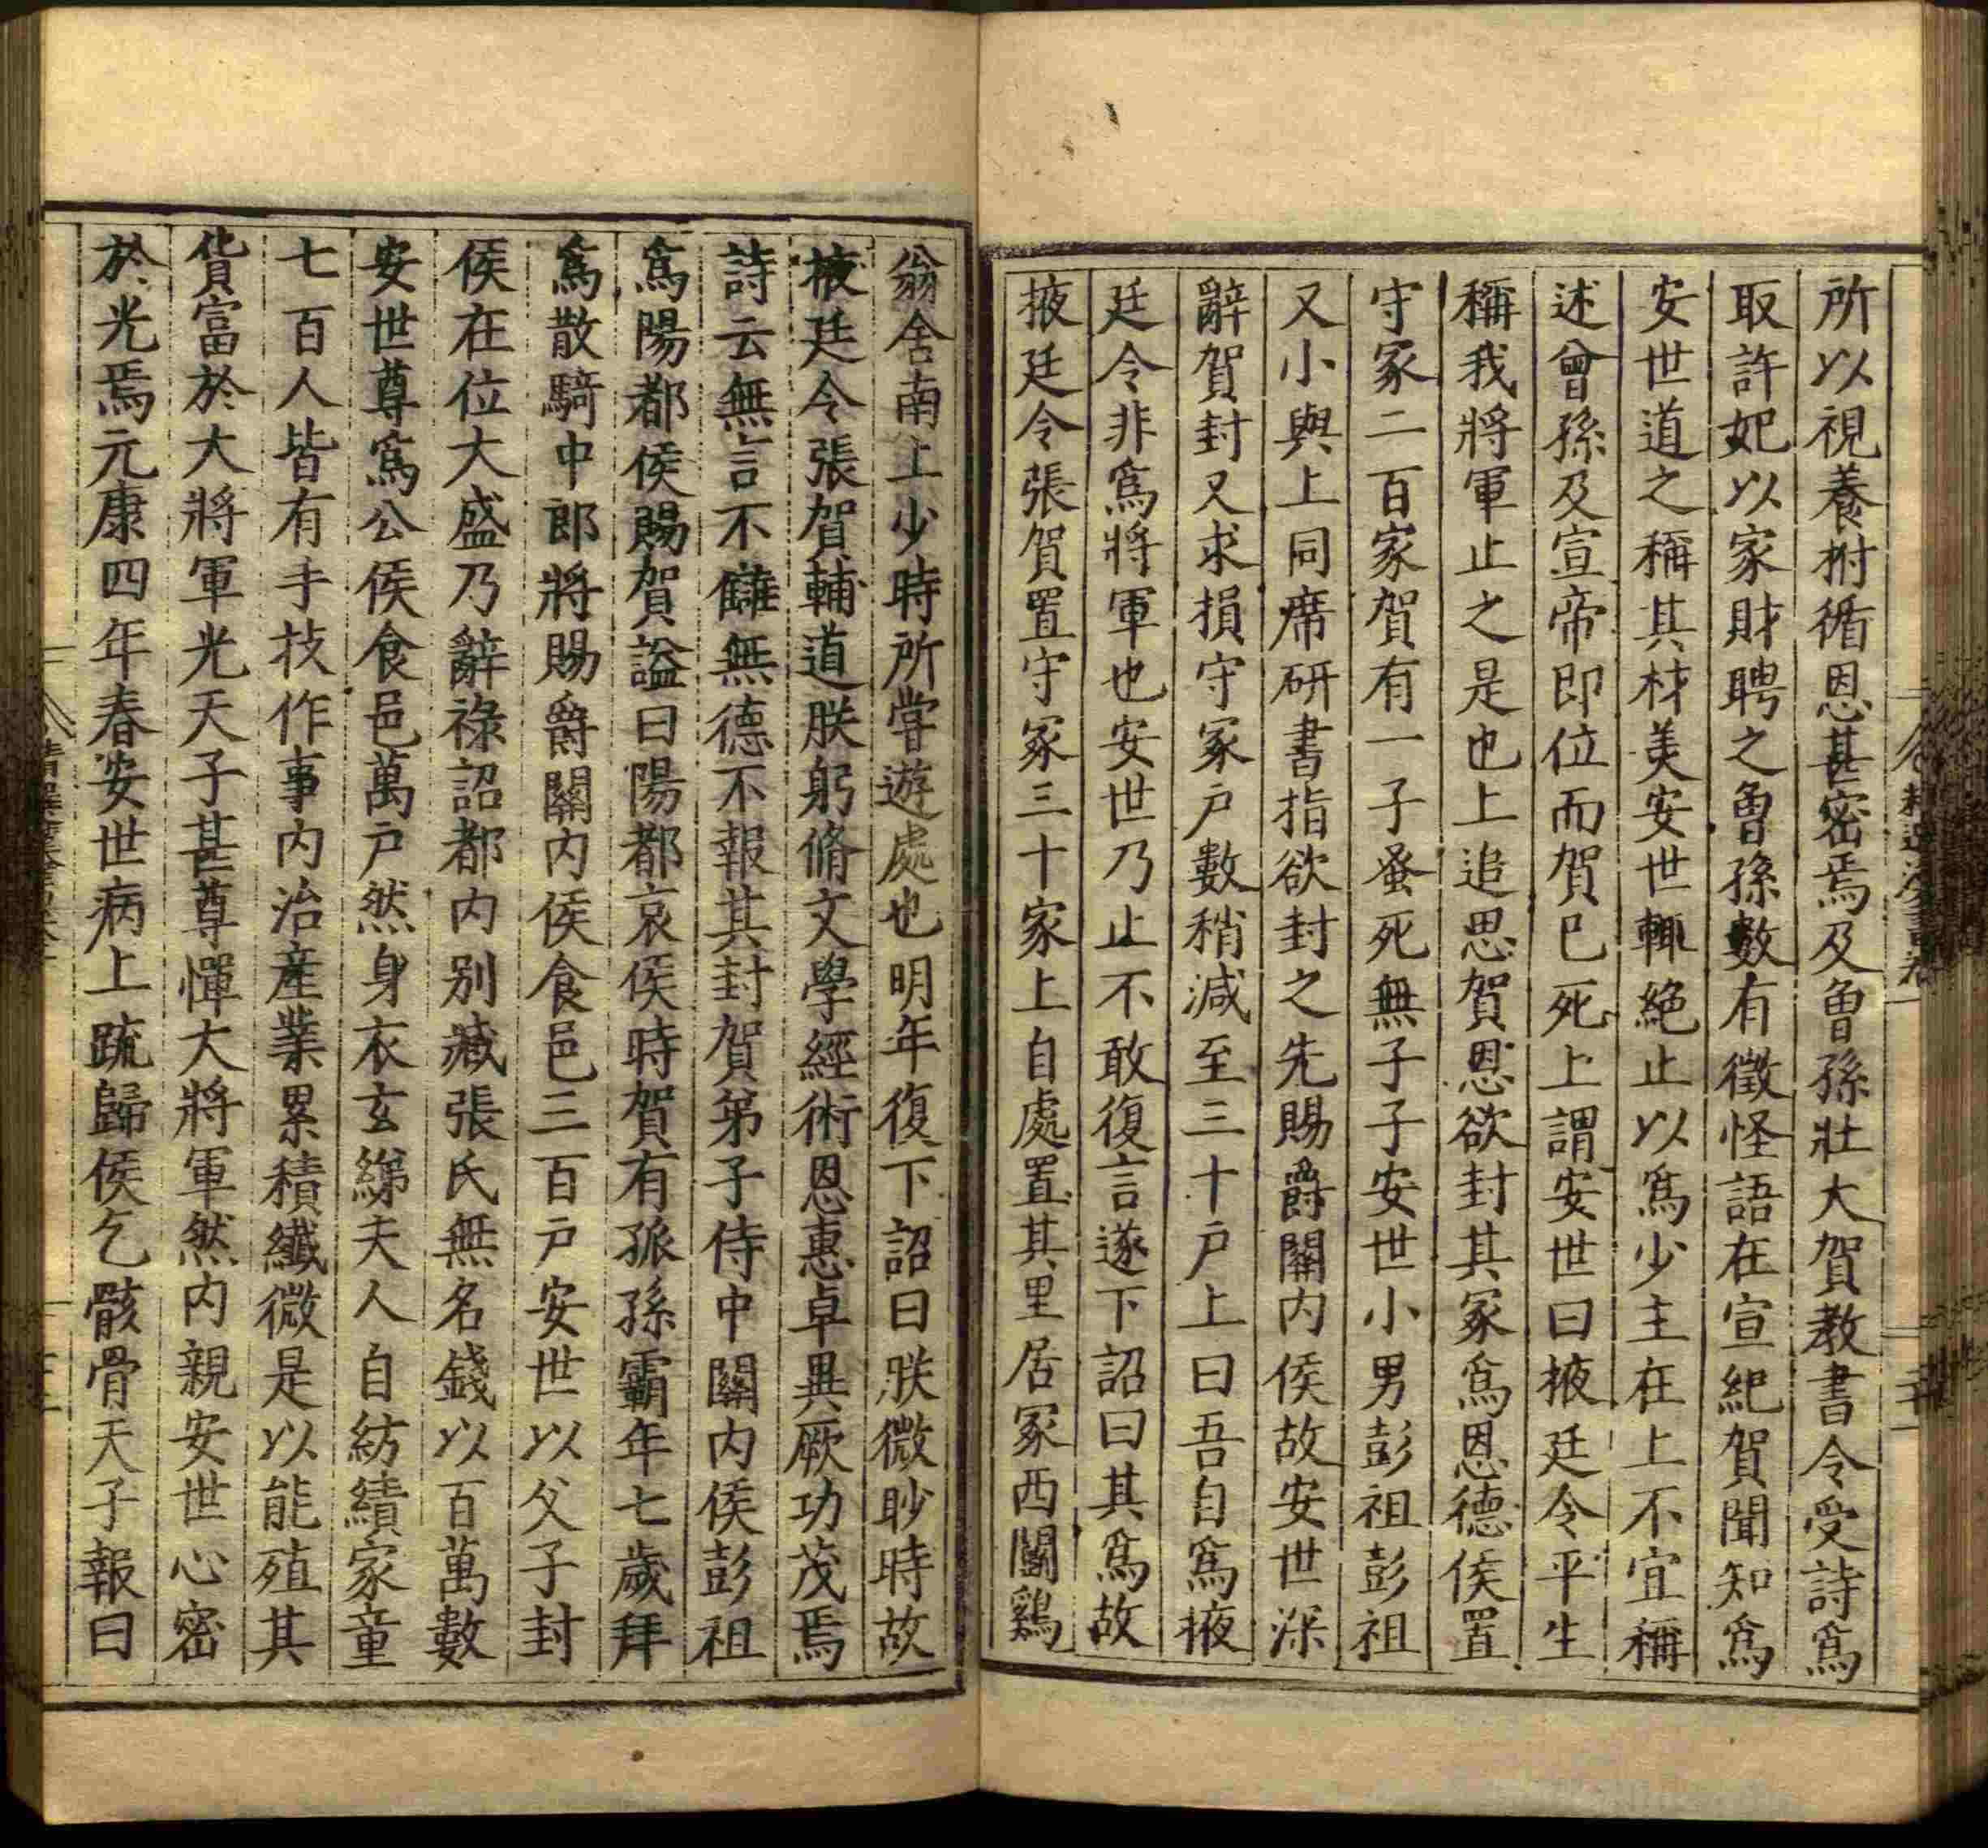 所以視養拊循恩甚密焉及曾孫壯大賀教書令受詩爲
取許妃以家財聘之曾孫數有徵怪語在宣紀賀聞知爲
安世道之稱其材美安世輒絶止以爲少主在上不宜稱
述曾孫及宣帝即位而賀已死上謂安世曰掖廷令平生
稱我將軍止之是也上追思賀恩欲封其冢爲恩德侯置
守冢二百家賀有一子蚤死無子子安世小男彭祖彭祖
又小與上同席研書指欲封之先賜爵關内侯故安世深
辭賀封又求損守冢户數稍減至三十户上曰吾自爲掖
廷令非爲將軍也安世乃止不敢復言遂下詔曰其爲故
掖廷令張賀置守冢三十家上自處置其里居冢西鬭鷄
翁舍南上少時所嘗遊處也明年復下詔曰朕微眇時故
掖廷令張賀輔道朕躬脩文學經術恩惠卓異厥功茂焉
詩云無言不讎無德不報其封賀弟子侍中關内侯彭祖
爲陽都侯賜賀謚曰陽都哀侯時賀有孤孫霸年七歲拜
爲散騎中郎將賜爵關内侯食邑三百户安世以父子封
侯在位大盛乃辭祿詔都内别臧張氏無名錢以百萬數
安世尊爲公侯食邑萬户然身衣玄綈夫人自紡績家童
七百人皆有手技作事内治産業累積纖微是以能殖其
貨富於大將軍光天子甚尊憚大將軍然内親安世心密
於光焉元康四年春安世病上疏歸侯乞骸骨天子報曰